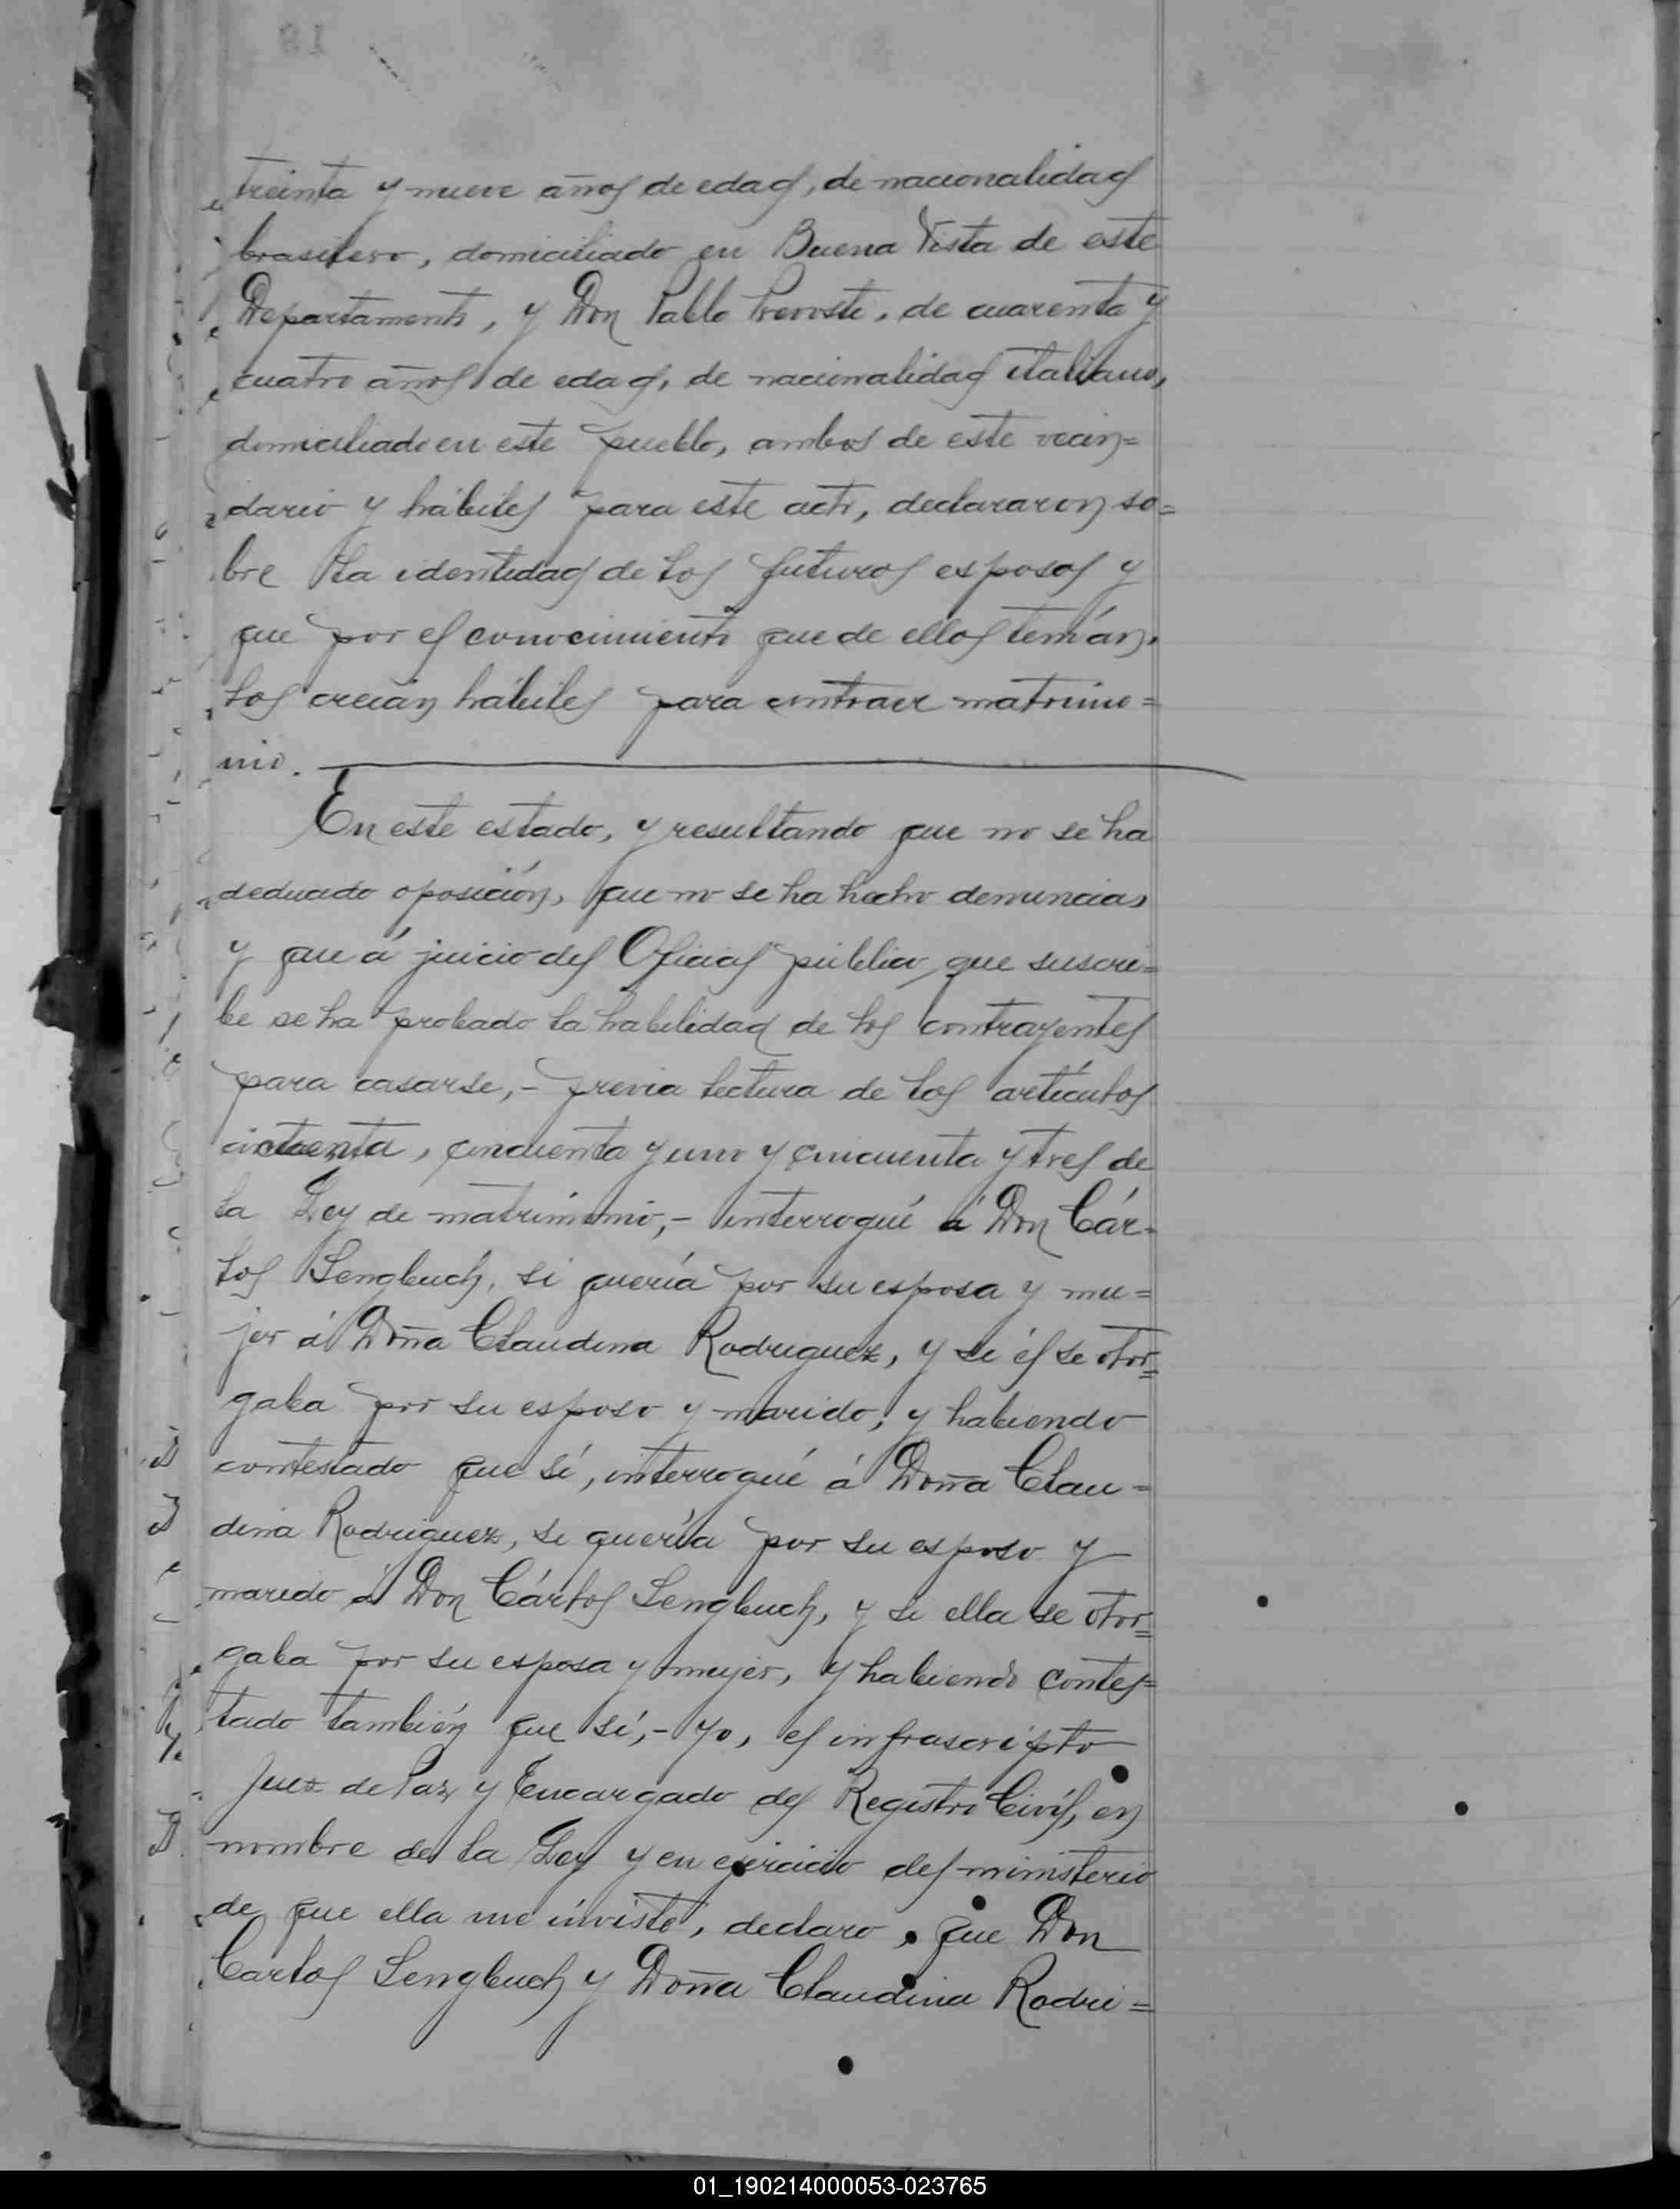 treinta y nueve años de edad, de nacionalidad
brasilero, domiciliado en Buena Vista de este
Departamento, y Don Pablo Prevoste, de cuarenta y
cuatro años de edad, de nacionalidad italiano,
domiciliado en este pueblo, ambos de este vecin=
dario y hábiles para este acto, declararon so=
bre la identidad de los futuros esposos y
que por el conocimiento que de ellos tenían,
los creían hábiles para contraer matrimo=
nio.
En este estado, y resultando que no se ha
deducido oposición, que no se ha hecho denuncias
y que á juicio del Oficial público que suscri=
be se ha probado la habilidad de los contrayentes
para casarse,- previa lectura de los artículos
cincuenta, cincuenta y uno y cincuenta y tres de
la Ley de matrimonio,- interrogué á Don Cár-
los Sengbuch, si quería por su esposa y mu=
jer á Doña Claudina Rodriguez, y si él se otor=
gaba por su esposo y marido, y habiendo
contestado que sí, interrogué á Doña Clau=
dina Rodriguez, si quería por su esposo y
marido á Don Cárlos Sengbuch, y si ella se otor=
gaba por su esposa y mujer, y habiendo contes=
tado también que sí,- yo, el infrascripto
Juez de Paz y Encargado del Registro Civil, en
nombre de la Ley y en ejercicio del ministerio
de que ella me inviste, declaro, que Don
Carlos Sengbuch y Doña Claudina Rodri=
01_190214000053-023765